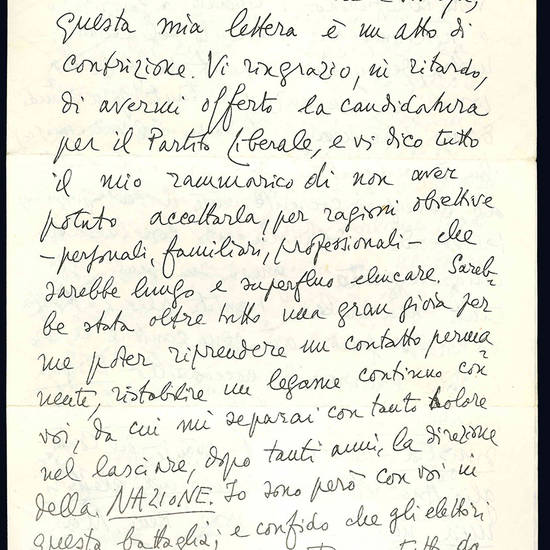 questa mia lettera è un atto di
contrizione. Vi ringrazio, in ritardo,
di avermi offerto la candidatura
per il Partito Liberale, e vi dico tutto
il mio rammarico di non aver
potuto accettarla, per ragioni obiettive
- personali, familiari, professionali - che
sarebbe lungo e superfluo elencare. Sareb-
be stata oltre tutto una gran gioia per
me poter riprendere un contatto perma-
nente, ristabilire un legame continuo con
voi, da cui mi separai con tanto dolore
nel lasciare, dopo tanti anni, la direzione
della NAZIONE. Io sono però con voi in
questa battaglia; e confido che gli elettori